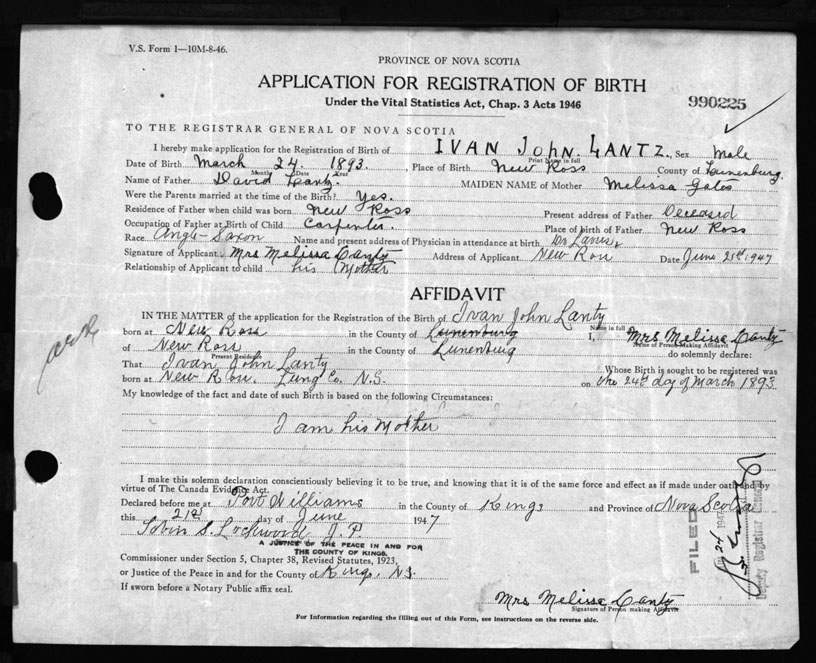 V.S. Form 1—10M-8-46.
PROVINCE OF NOVA SCOTIA
APPLICATION FOR REGISTRATION OF BIRTH
Under the Vital Statistics Act, Chap. 3 Acts 1946
990225
TO THE REGISTRAR GENERAL OF NOVA SCOTIA
I hereby make application for the Registration of Birth of IVAN JOHN LANTZ, Sex Male
Print Name in full
Date of Birth March 24. 1893, Place of Birth New Ross County of Lunenburg.
Month Date Year
Name of Father David Lantz. MAIDEN NAME of Mother Melissa Gates
Were the Parents married at the time of the Birth? Yes.
Residence of Father when child was born New Ross Present address of Father Deceased
Occupation of Father at Birth of Child Carpenter. Place of birth of Father New Ross
Race Anglo-Saxon Name and present address of Physician in attendance at birth Dr
Signature of Applicant Mrs Melissa Lantz Address of Applicant New Ross Date June 21st 1947
Relationship of Applicant to child his Mother
AFFIDAVIT
IN THE MATTER of the application for the Registration of the Birth of Ivan John Lantz
Name in full
born at New Ross in the County of Lunenburg I, Mrs Melissa Lantz
Name of Person making Affidavit
of New Ross in the County of Lunenburg do solemnly declare:
Present Residence
That Ivan John Lantz Whose Birth is sought to be registered was
born at New Ross, Lung Co. N.S. on the 24th day of March 1893.
My knowledge of the fact and date of such Birth is based on the following Circumstances:
I am his Mother
I make this solemn declaration conscientiously believing it to be true, and knowing that it is of the same force and effect as if made under oath and by
virtue of The Canada Evidence Act.
Declared before me at Port Williams in the County of Kings and Province of Nova Scotia
this 21st day of June 1947
S. Lockwood J.P.
A JUSTICE OF THE PEACE IN AND FOR
THE COUNTY OF KINGS.
Commissioner under Section 5, Chapter 38, Revised Statutes, 1923,
or Justice of the Peace in and for the County of Kings, N.S.
If sworn before a Notary Public affix seal.
FILED
24 1947
Deputy Registrar General
Mrs Melissa Lantz
Signature of Person making Affidavit
For Information regarding the filling out of this Form, see instructions on the reverse side.